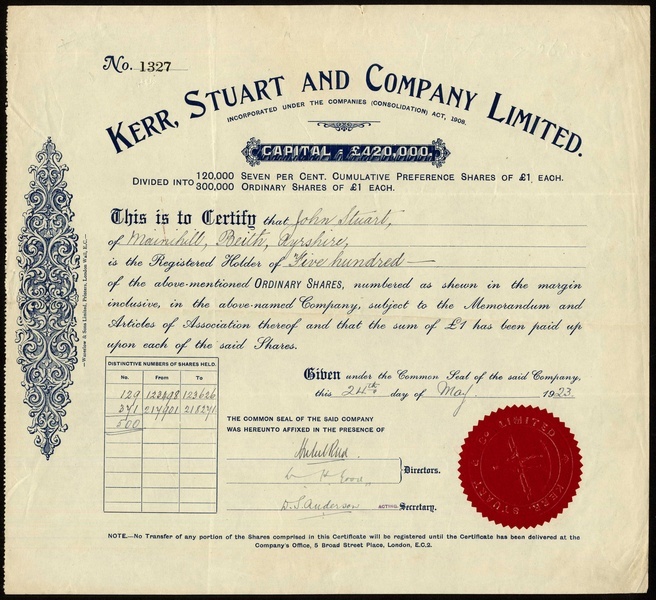 No. 1327
KERR, STUART AND COMPANY LIMITED.
INCORPORATED UNDER THE COMPANIES (CONSOLIDATION) ACT, 1908.
CAPITAL - £420,000.
DIVIDED INTO 120,000 SEVEN PER CENT. CUMULATIVE PREFERENCE SHARES OF £1 EACH.
300,000 ORDINARY SHARES OF £1 EACH.
This is to Certify that John Stuart,
of Mainshill, Beith, Ayrshire,
is the Registered Holder of Five hundred —
of the above-mentioned ORDINARY SHARES, numbered as shewn in the margin
inclusive, in the above-named Company, subject to the Memorandum and
Articles of Association thereof and that the sum of £1 has been paid up
upon each of the said Shares.
Given under the Common Seal of the said Company,
this 24th day of May 1923.
DISTINCTIVE NUMBERS OF SHARES HELD.
No. From To
129 123498 123626
371 217901 218271
500
THE COMMON SEAL OF THE SAID COMPANY
WAS HEREUNTO AFFIXED IN THE PRESENCE OF
Directors.
D. S. Anderson ACTING Secretary.
KERR STUART & CO LIMITED
NOTE.—No Transfer of any portion of the Shares comprised in this Certificate will be registered until the Certificate has been delivered at the
Company's Office, 5 Broad Street Place, London, E.C.2.
& Sons Limited, Printers, London Wall, E.C.